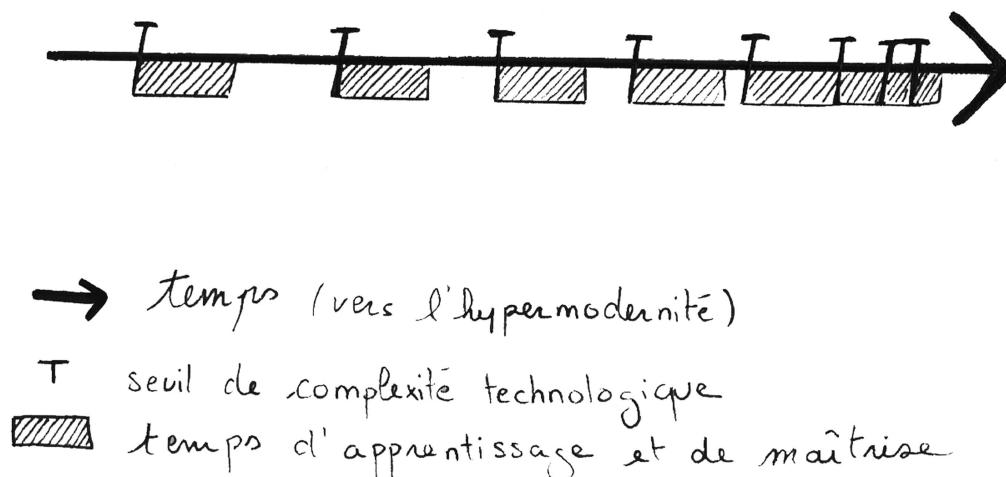 temps (vers l'hypermodernité)
seuil de complexité technologique
temps d'apprentissage et de maîtrise